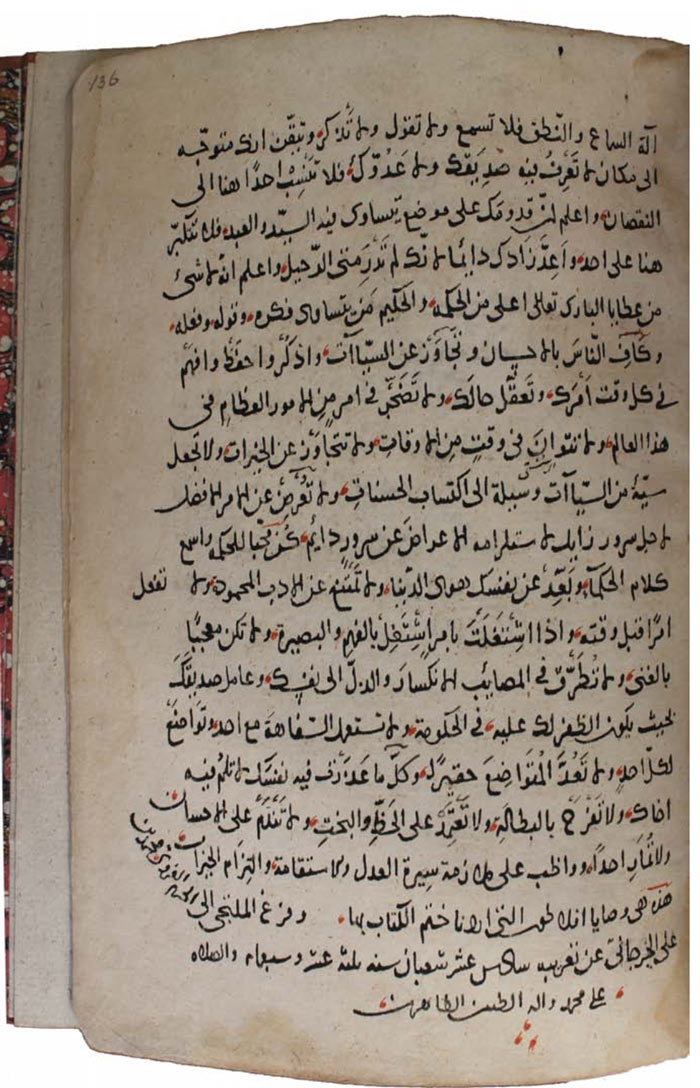 136
آلة السماع والنطق فلا تسمع ولا تقول ولا تَذكر وتيقّن انك متوجّه
الى مكان لا تَعرِفُ فيه صَدِيقَك ولا عَدُوَّكَ فلا تَنسِبْ احدًا هنا الى
النقصان واعلم انّ قدومك على موضع يتساوى فيه السيّد والعبد فلا تتكبّر
هنا على احد واعِدَّ زادك دايمًا لانّك لم تَدْرِ متى الرّحيل واعلم انه لا شئ
من عطايا البارى تعالى اعلى من الحكمة والحكيم مَن يتساوى فكره وقوله وفعله
وكافِ النّاسَ بالاحسان وتجاوَزْ عن السيّاآت واذكُر واحفَظ وافهَم
في كل وقت أمرَك وتَعقَّل حالك ولا تَضجَر في امر مِن الامور العظام فى
هذا العالم ولا تتوانَ فى وقتٍ مِن الاوقات ولا تتجاوَز عن الخيرات ولا تجعل
سيّة من السيّاآت وسيلة الى اكتساب الحسنات ولا تُعرِض عن الامر الافضل
لاجل سرور زايل لاستلزامه الاعراضَ عن سرورٍ دايم كُنْ مُحِبّا للحكمة واسمع
كلام الحكماء وبَعِّد عن نفسك هوى الدّنيا ولا تَمتَنِع عن الادب المحمود ولا تفعل
امرًا قبل وقته واذا اشتَغَلتَ بامرٍ اِشتَغِل بالفهم والبصيرة ولا تكن معجبًا
بالغنى ولا تُطَرِّق في المصايب الانكسارَ والذلّ الى نفسك وعامل صديقَكَ
بحيث يكون الظفر لك عليه فى الحكومة ولا تستعمل السّفاهةَ مع احد وتَواضَع
لكلّ احدٍ ولا تَعُدَّ المُتواضِعَ حقيرًا وكلّ ما عَذَرْتَ فيه نفسَك لا تَلُم فيه
اخاك ولا تَفرَح بالبطالة ولا تَعتَمِد على الحَظِّ والبَختِ ولا تَندَم على الاحسان
ولا تُمارِ احدًا وواظب على ملازمة سِيرة العدل والاستقامة والتِزام الخيرات
هذه هى وصايا افلاطون التى اردنا ختم الكتاب بها وفرغ الملتجى الى
على الجرجانى عن تعريبه سادس عشر شعبان سنه ثلثه عشر وسبعماه والصلاه
على محمد واله الطيبين الطاهرين